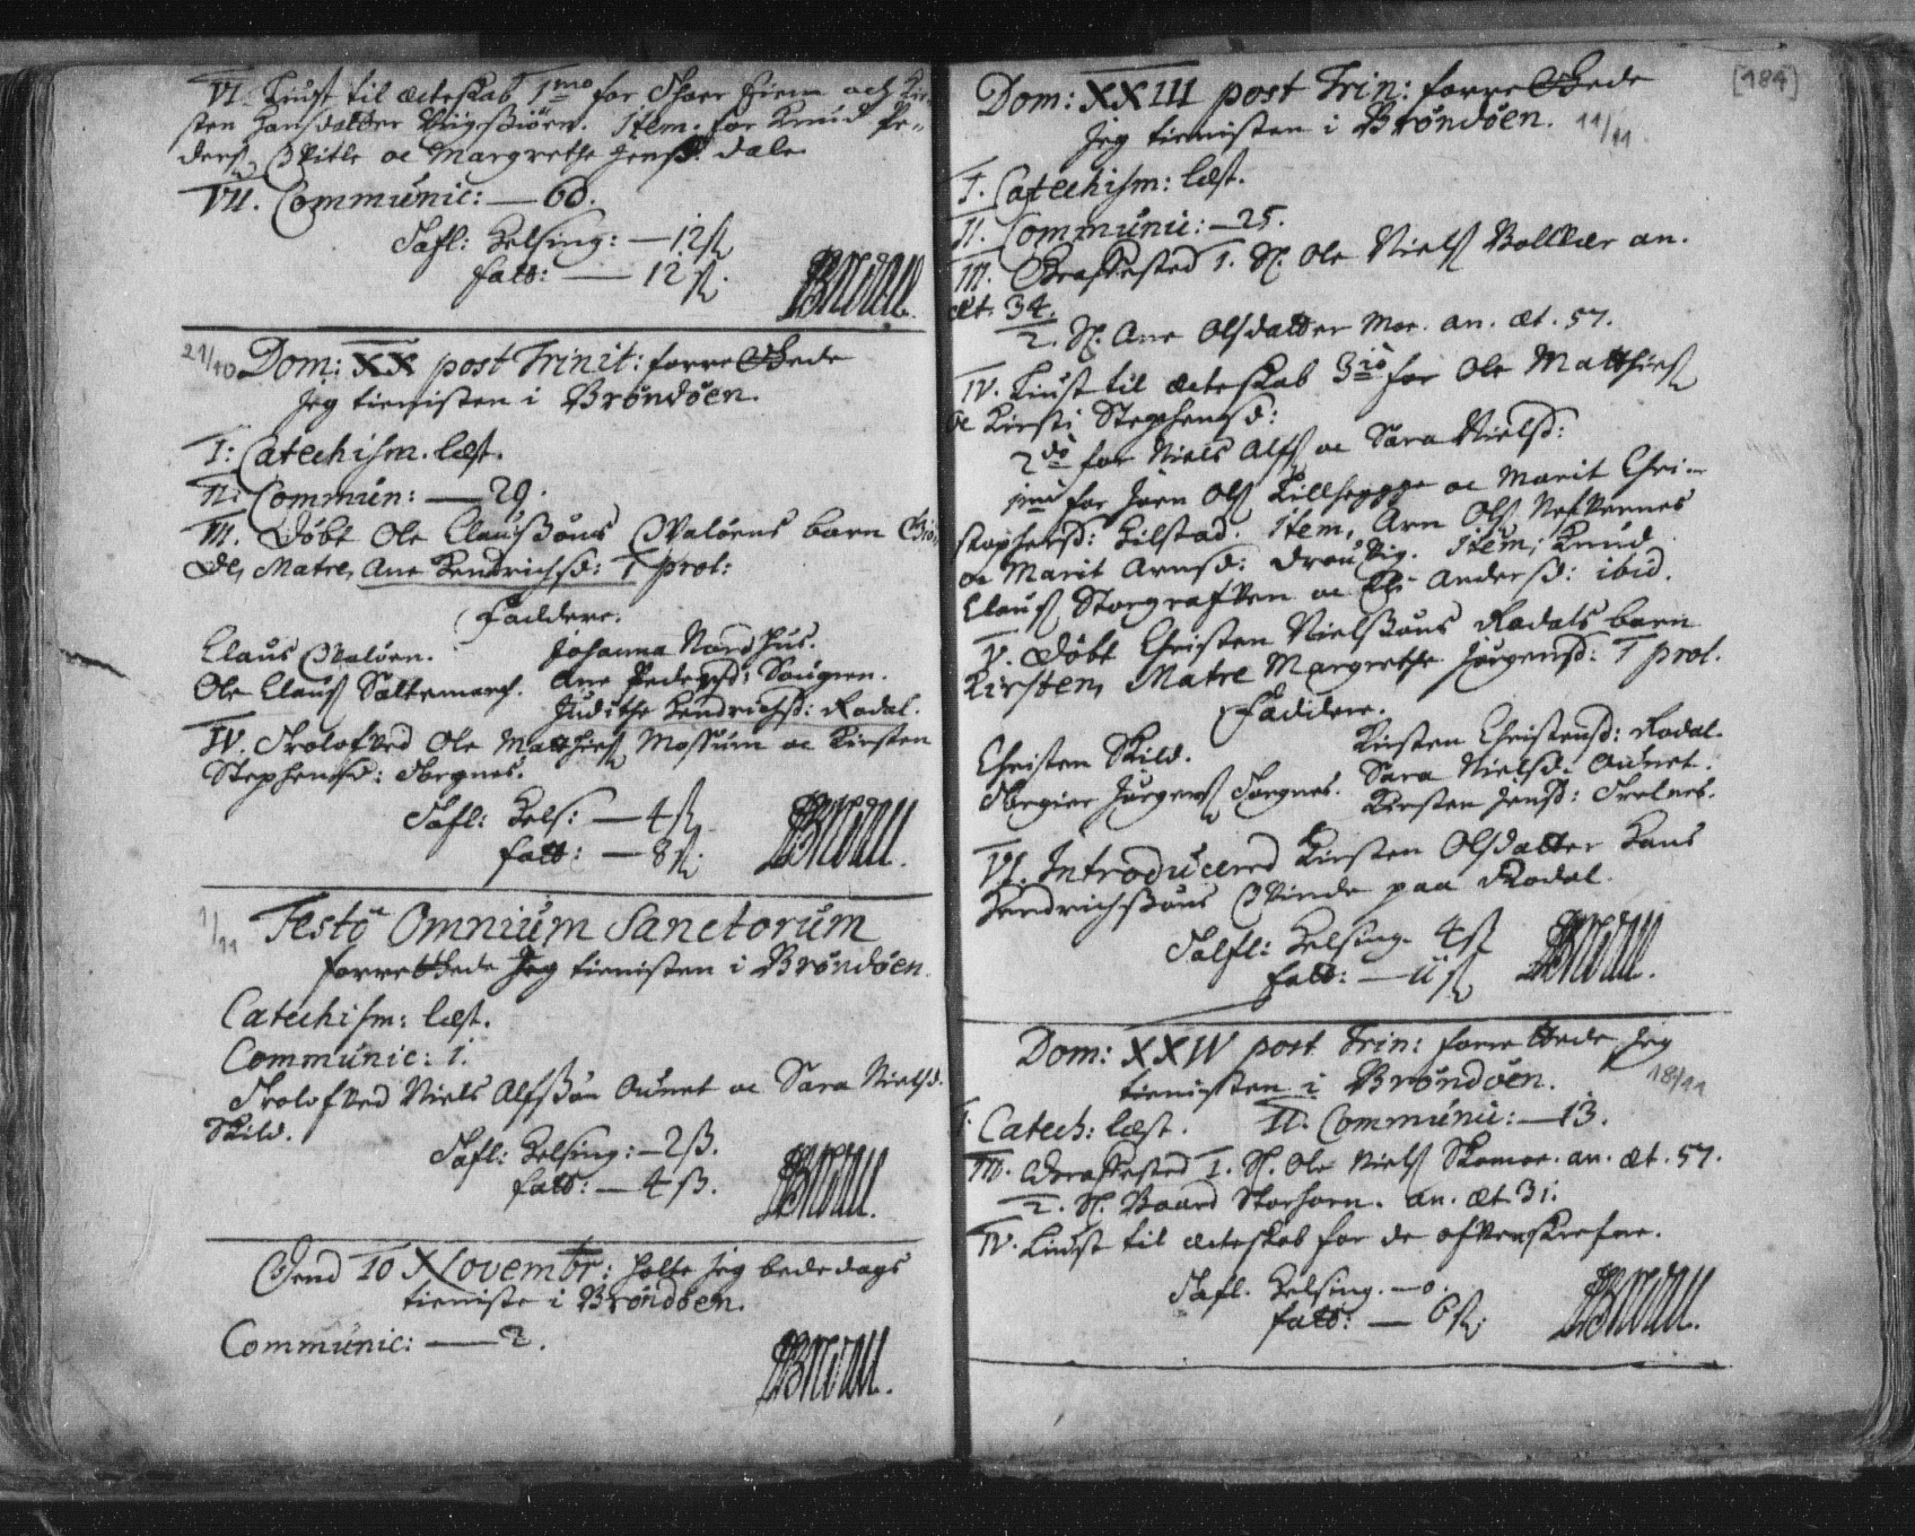 VI. Liust til ægteskab 1mo for Thoer Eirm och Kir-
sten Hansdatter Item. for Knud Pe-
ders. oc Margrethe Jensd. Dale
VII. Communic: — 60.
Tafl: Helsing: — 12 ß
fatt: — 12 ß.
21/10 Dom: XX post Trinit: forrettede
Jeg tienisten i Brøndøen.
I: Catechism. læst.
II: Commun: — 29.
III. Døbt Ole Claussøns Qvaløens barn
Matre, Ane Hendrichsd: T prol:
Faddere.
Claus Qvaløen. Johanna Nordhus.
Ole Clauss. Saltemarch. Ane Pedersd: Sougnen.
Judithe Hendrichsd: Rodal.
IV. Trolofved Ole Matthiess. Mossum oc Kirsten
Stephensd: Torgnes.
Tafl: Hels: — 4 ß
fatt: — 8 ß.
1/11 Festo Omnium Sanctorum
forrettede Jeg tienisten i Brøndøen.
Catechism: læst.
Communic: 1.
Trolofved Niels Alfssøn Oudnet oc Sara Nielsd.
Skild.
Tafl: Helsing: — 2 ß.
fatt: — 4 ß.
Dend 10 Novembr: holte Jeg bededags
tieniste i Brøndøen.
Communic: — 2.
[184]
Dom: XXIII post Trin: forrettede
Jeg tienisten i Brøndøen. 11/11
I. Catechism: læst.
II. Communic: — 25.
III. Graffested 1. Sl. Ole Niels. an.
æt. 34.
2. Sl. Ane Olsdatter Moe. an. æt. 57.
IV. Liust til ægteskab 3io for Ole Matthiess.
oc Kirsti Stephensd:
2do for Niels Alfs. oc Sara Nielsd:
1mo for Joen Ols. oc Marit Chri-
stophersd: Tilstad. Item, Arn Ols.
oc Marit Arnsd: Item, Knud
Clauss. Storgrafven oc Andersd: ibid.
V. Døbt Christen Nielssøns Rodals barn
Kirsten, Matre Margrethe Jørgensd: T prol.
Faddere.
Christen Skild. Kirsten Christensd: Rodal.
Jørgens. Torgnes. Sara Nielsd: Oudnet.
Kirsten Jensd: Trelnes.
VI. Introducered Kirsten Olsdatter Hans
Hendrichssøns Qvinde paa Rodal.
Tafl: Helsing. 4 ß
fatt: — 11 ß
Dom: XXIV post Trin: forrettede Jeg
tienisten i Brøndøen. 18/11
I. Catech: læst. II. Communic: — 13.
III. Graffested 1. Sl. Ole Niels. Skomoe. an. æt. 57.
2. Sl. Baard Storhorn. an. æt. 31.
IV. Liust til ægteskab for de ofvenskrefne.
Tafl. Helsing. — 0.
fatt: — 6 ß.